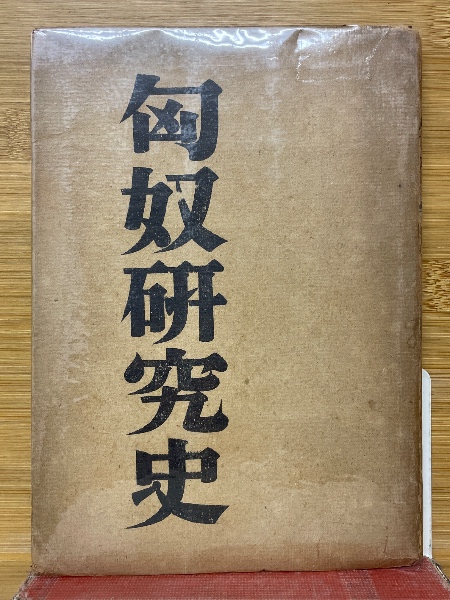 匈奴研究史